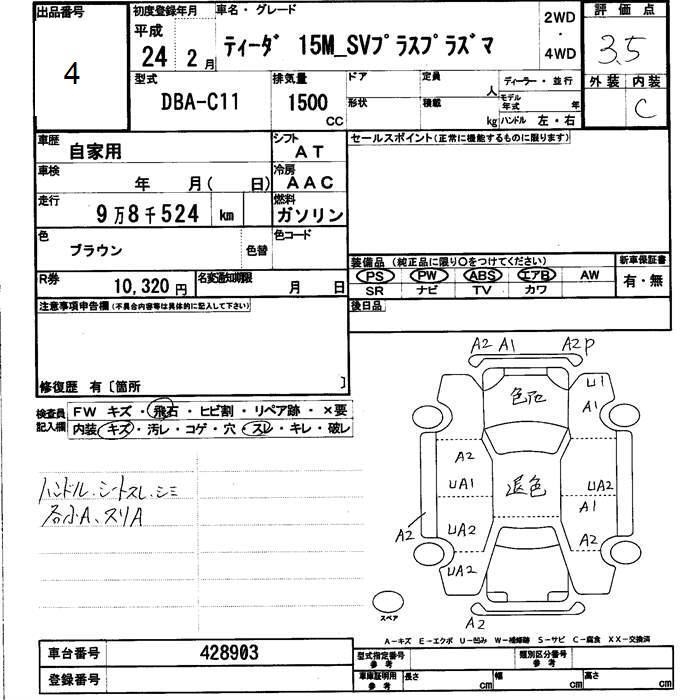 出品番号
4
初度登録年月
平成
24 2月
車名・グレード
ティーダ 15M_SVプラスプラズマ
2WD
・
4WD
評価点
3.5
外装 内装
C
型式
DBA-C11
排気量
1500
CC
ドア
形状
定員
人
積載
kg
ディーラー・並行
モデル
年式 年
ハンドル 左・右
車歴
自家用
シフト
AT
車検
年 月( 日)
冷房
AAC
走行
9万8千524 km
燃料
ガソリン
色
ブラウン
色替
色コード
R券
10,320円
名変通知期限
月 日
セールスポイント(正常に機能するものに限ります)
装備品 (純正品に限り〇をつけてください)
PS PW ABS エアB AW
SR ナビ TV カワ
新車保証書
有・無
後日品
注意事項申告欄(不具合内容等は具体的に記入して下さい)
修復歴 有〔箇所 〕
検査員
記入欄
FW キズ・飛石・ヒビ割・リペア跡・×要
内装・キズ・汚レ・コゲ・穴・スレ・キレ・破レ
ハンドル・シートスレ・シミ
各小A、スリA
A2 A1 A2P
U1
A1
色ア
A2
UA1
退色
UA2
A1
UA2
A2
A2
UA2
A2
スペア
A-キズ E-エクボ U-凹み W-補修跡 S-サビ C-腐食 XX-交換済
車台番号
428903
登録番号
型式指定番号
参考
類別区分番号
参考
車庫証明用
参考
長さ
cm
幅
cm
高さ
cm